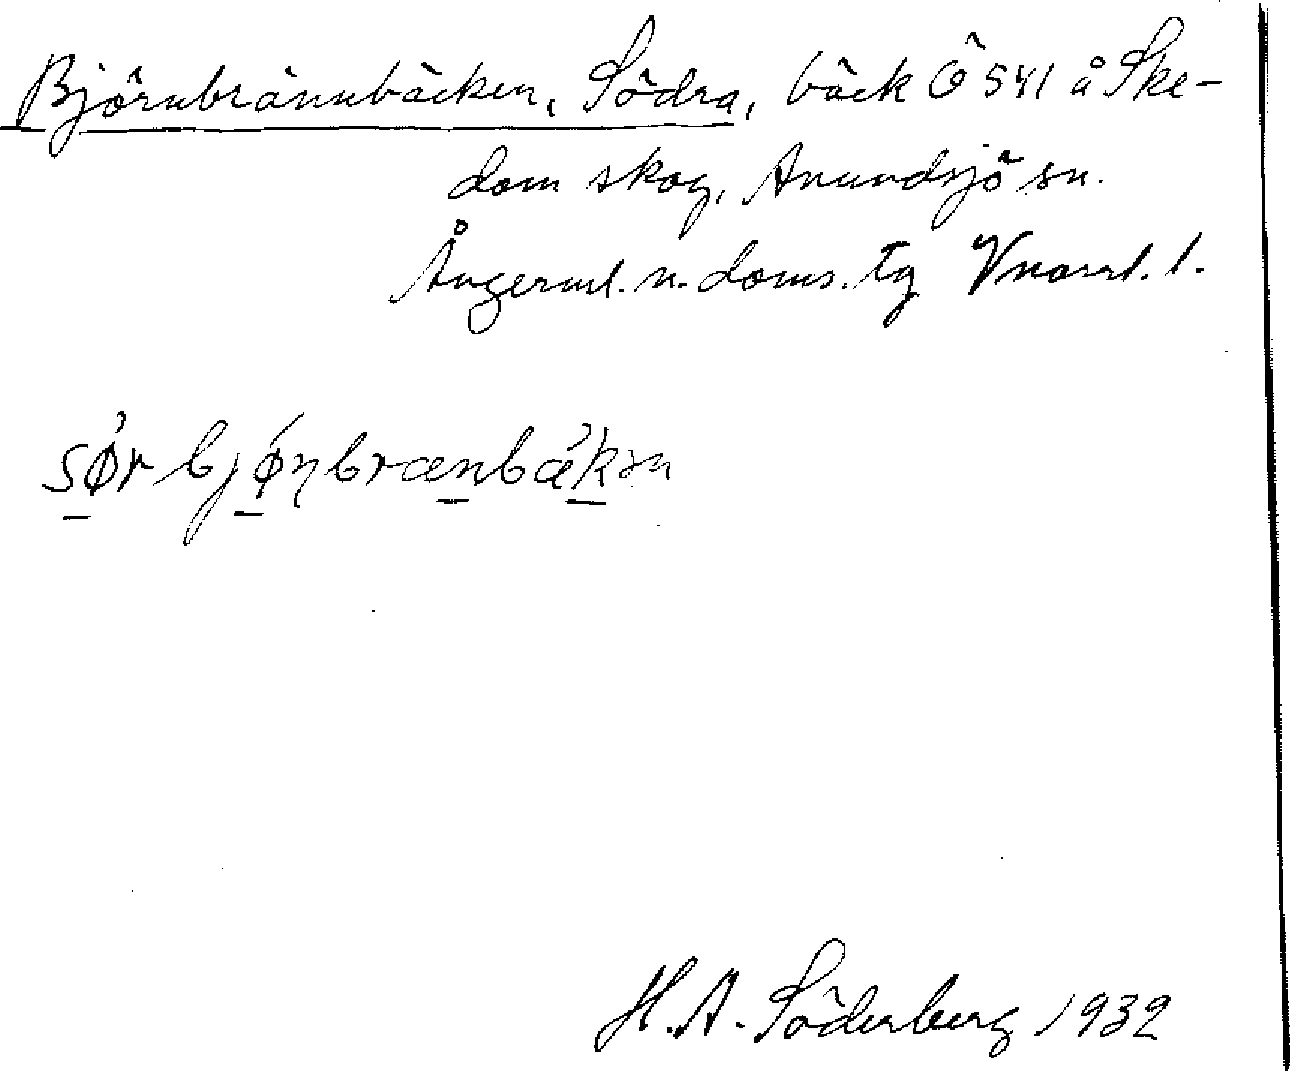 Björnbrännbäcken, Södra, bäck Ö 541 å Ske-
dom skog, Anundsjö sn.
Ångerml. n. doms. tg Vnorrl. l.
sø̀r bjǿɳbrænbæ̀kən
H. A. Söderberg 1932